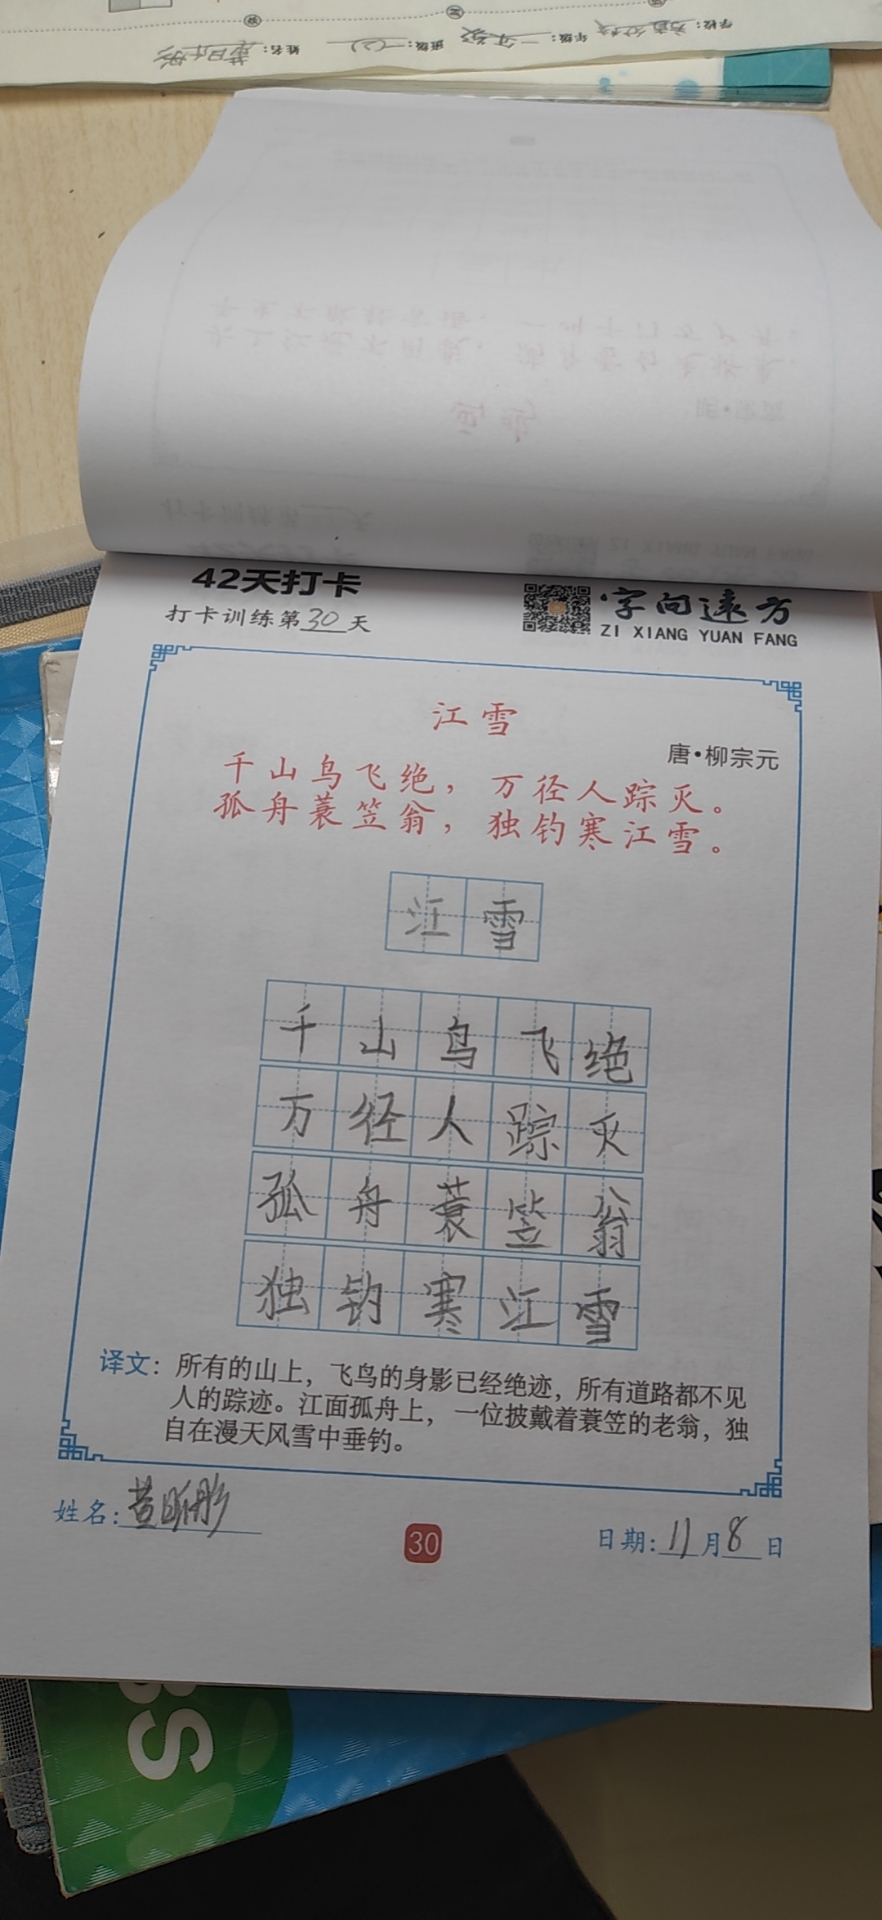 42天打卡
打卡训练第30天
字向远方
ZI XIANG YUAN FANG
江雪
唐·柳宗元
千山鸟飞绝，万径人踪灭。
孤舟蓑笠翁，独钓寒江雪。
江雪
千山鸟飞绝
万径人踪灭
孤舟蓑笠翁
独钓寒江雪
译文：所有的山上，飞鸟的身影已经绝迹，所有道路都不见
人的踪迹。江面孤舟上，一位披戴着蓑笠的老翁，独
自在漫天风雪中垂钓。
姓名：黄昕彤
30
日期：11月8日